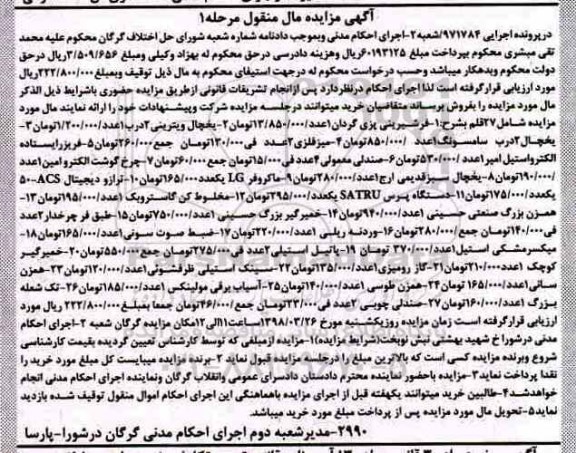 آگهی مزایده مال منقول مرحله۱
درپرونده اجرایی ۹۷۱۷۸۴/شعبه۲-اجرای احکام مدنی وبموجب دادنامه شماره شعبه شورای حل اختلاف گرگان محکوم علیه محمد
تقی مبشری محکوم بپرداخت مبلغ ۶۰۱۹۳۱۲۵ریال وهزینه دادرسی درحق محکوم له بهزاد وکیلی ومبلغ ۳/۵۰۹/۶۵۶ریال درحق
دولت محکوم وبدهکار میباشد وحسب درخواست محکوم له درجهت استیفای محکوم به مال ذیل توقیف وبمبلغ ۲۲۲/۸۰۰/۰۰۰ریال
مورد ارزیابی قرارگرفته است لذا اجرای احکام درنظردارد پس ازانجام تشریفات قانونی ازطریق مزایده حضوری باشرایط ذیل الذکر
مال مورد مزایده را بفروش برساند متقاضیان خرید میتوانند درجلسه مزایده شرکت وپیشنهادات خود را ارائه نمایند مال مورد
مزایده شامل۲۷قلم بشرح:۱-فرشیرینی پزی گردان۱عدد/۱۳/۸۵۰/۰۰۰تومان۲-یخچال ویترینی۲درب۱عدد/۱/۲۰۰/۰۰۰تومان۳-
یخچال۲درب سامسونگ۱عدد /۸۵۰/۰۰۰تومان۴-میزفلزی۲عدد فی۱۳۰/۰۰۰تومان جمع۲۶۰/۰۰۰تومان۵-فریزرایستاده
الکترواستیل امیر۱عدد /۵۳۰/۰۰۰تومان۶-صندلی معمولی۴عدد فی۱۵/۰۰۰تومان جمع۶۰/۰۰۰تومان۷-چرخ گوشت الکترو امین۱عدد
/۱۹۰/۰۰۰تومان۸-یخچال سبزقدیمی ارج۱عدد/۲۸۰/۰۰۰تومان۹-ماکروفر LG یکعدد/۱۶۵/۰۰۰تومان۱۰-ترازو دیجیتال ACS-۵۰
یکعدد/۱۷۵/۰۰۰تومان۱۱-دستگاه پرس SATRU یکعدد/۲۹۵/۰۰۰تومان۱۲-مخلوط کن گاستروبک ۱عدد/۱۹۵/۰۰۰تومان۱۳-
همزن بزرگ صنعتی حسینی ۱عدد/۹۴۰/۰۰۰تومان۱۴-خمیرگیر بزرگ حسینی ۱عدد/۷۵۰/۰۰۰تومان۱۵-طبق فر چرخدار۲عدد
فی۱۴۰/۰۰۰تومان جمع/۲۸۰/۰۰۰تومان۱۶-وردنه ریلی ۱عدد/۲۲۰/۰۰۰تومان۱۷-ضبط صوت سونی۱عدد/۱۶۵/۰۰۰تومان۱۸-
میکسرمشکی استیل۱عدد/۳۷۰/۰۰۰ تومان ۱۹-پاتیل استیلی۲عدد فی۲۷۵/۰۰۰تومان جمع۵۵۰/۰۰۰تومان۲۰-خمیرگیر
کوچک ۱عدد۲۱۰/۰۰۰تومان۲۱-گاز رومیزی۱عدد/۱۳۵/۰۰۰تومان۲۲-سینک استیلی ظرفشوئی۱عدد/۱۲۰/۰۰۰تومان۲۳-همزن
سانی۱عدد/۱۶۵/۰۰۰ تومان۲۴-همزن طوسی ۱عدد/۱۴۰/۰۰۰تومان۲۵-آسیاب برقی مولینکس ۱عدد/۱۸۵/۰۰۰تومان۲۶-تک شعله
بزرگ ۱عدد/۱۶۰/۰۰۰تومان۲۷-صندلی چوبی ۲عدد فی۲۳/۰۰۰تومان جمع/۴۶/۰۰۰تومان جمعا بمبلغ۲۲۲/۸۰۰/۰۰۰ ریال مورد
ارزیابی قرارگرفته است زمان مزایده روزیکشنبه مورخ ۱۳۹۸/۰۳/۲۶ساعت۱۱الی۱۲مکان مزایده گرگان شعبه ۲-اجرای احکام
مدنی درشوراخ شهید بهشتی نبش نوبخت(شرایط مزایده)۱-مزایده ازمبلغی که توسط کارشناس تعیین گردیده بقیمت کارشناسی
شروع وبرنده مزایده کسی است که بالاترین مبلغ را درجلسه مزایده قبول نماید ۲-برنده مزایده میبایست کل مبلغ مورد خرید را
نقدا پرداخت نماید۳-مزایده باحضور نماینده محترم دادستان دادسرای عمومی وانقلاب گرگان ونماینده اجرای احکام مدنی انجام
خواهدشد۴-طالبین خرید میتوانند یکهفته قبل از اجرای مزایده باهماهنگی این اجرای احکام اموال منقول توقیف شده بازدید
نماید۵-تحویل مال مورد مزایده پس از پرداخت مبلغ مورد خرید میباشد.
۲۹۹۰-مدیرشعبه دوم اجرای احکام مدنی گرگان درشورا-پارسا